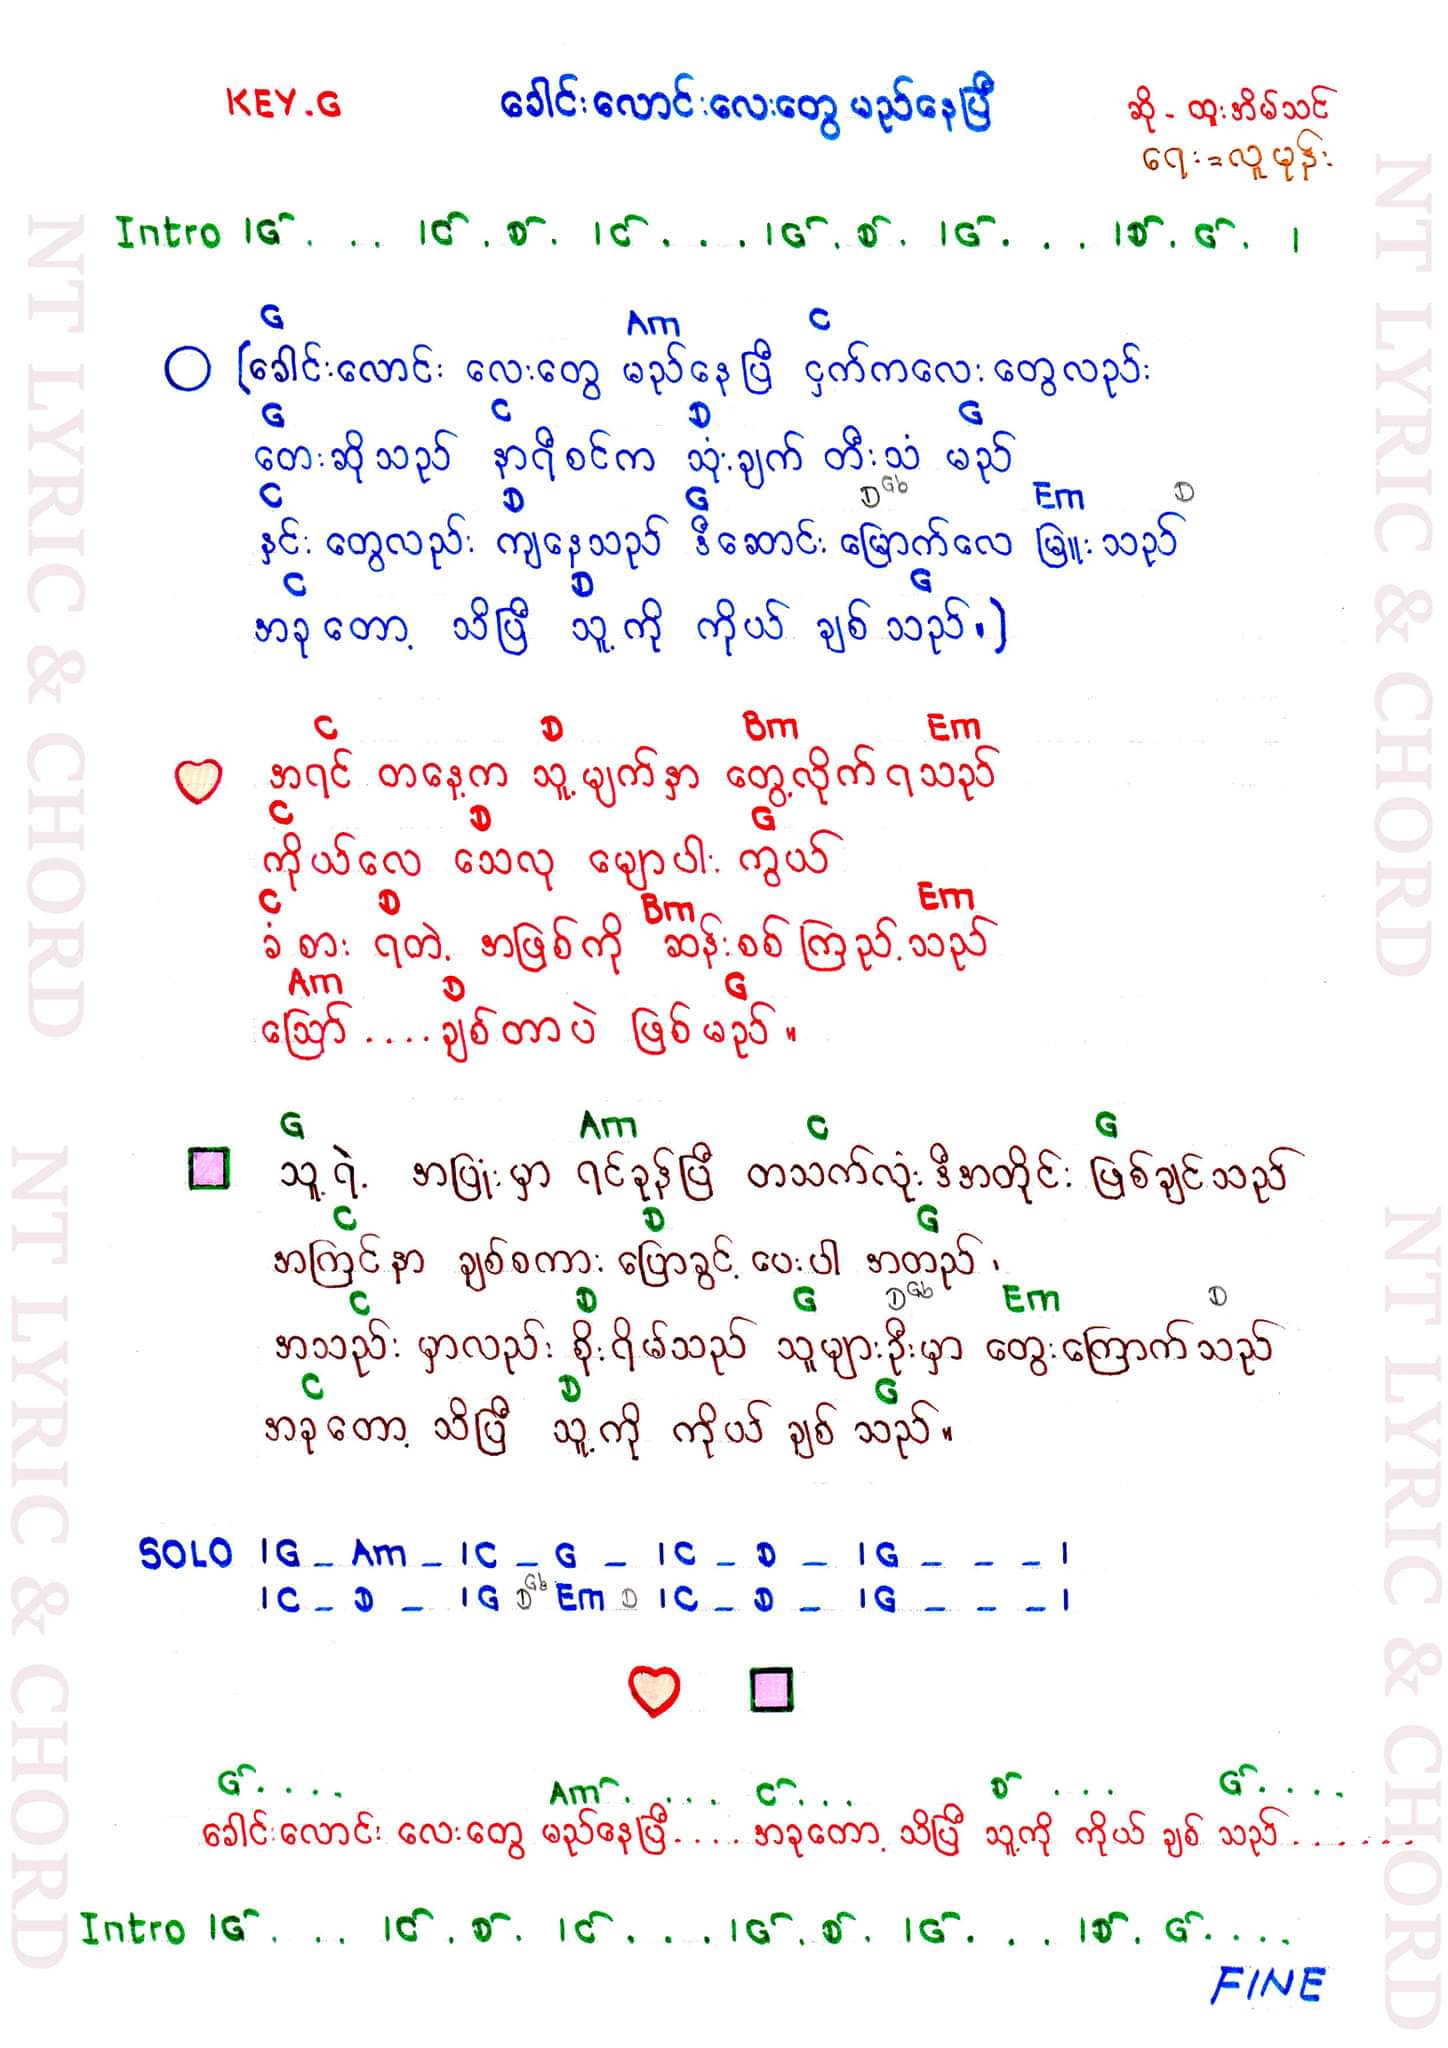 KEY.G ခေါင်းလောင်းလေးတွေ မည်နေပြီ ဆို - ထူးအိမ်သင်
ရေး = လူမုန်း
Intro |G . . . |C . D . |C . . . |G . D . |G . . . |D . G . |
G Am C
(ခေါင်းလောင်း လေးတွေ မည်နေပြီ ငှက်ကလေးတွေလည်း
G C D G
တေးဆိုသည် နာရီစင်က သုံးချက် တီးသံ မည်
C D G D Gb Em D
နှင်းတွေလည်း ကျနေသည် ဒီဆောင်း မြောက်လေ မြူးသည်
C D G
အခုတော့ သိပြီ သူ့ကို ကိုယ် ချစ်သည်။)
C D Bm Em
အရင် တနေ့က သူ့မျက်နှာ တွေ့လိုက်ရသည်
C D G
ကိုယ်လေ သေလု မျောပါး ကွယ်
C D Bm Em
ခံစားရတဲ့ အဖြစ်ကို ဆန်းစစ်ကြည့်သည်
Am D G
ဪ....ချစ်တာပဲ ဖြစ်မည်။
G Am C G
သူ့ရဲ့ အပြုံးမှာ ရင်ခုန်ပြီ တသက်လုံး ဒီအတိုင်း ဖြစ်ချင်သည်
C D G
အကြင်နာ ချစ်စကား ပြောခွင့် ပေးပါ အတည်၊
C D G D Gb Em D
အသည်းမှာလည်း စိုးရိမ်သည် သူများဦးမှာ တွေးကြောက်သည်
C D G
အခုတော့ သိပြီ သူ့ကို ကိုယ် ချစ် သည်။
SOLO |G _ Am _ |C _ G _ |C _ D _ |G _ _ _ |
|C _ D _ |G D Gb Em D |C _ D _ |G _ _ _ |
G . . . . Am . . . . C . . . D . . . G . . . .
ခေါင်းလောင်း လေးတွေ မည်နေပြီ.... အခုတော့ သိပြီ သူ့ကို ကိုယ် ချစ် သည်.......
Intro |G . . . |C . D . |C . . . |G . D . |G . . . |D . G . . . .
FINE
NT LYRIC & CHORD
NT LYRIC & CHORD
NT LYRIC & CHORD
NT LYRIC & CHORD